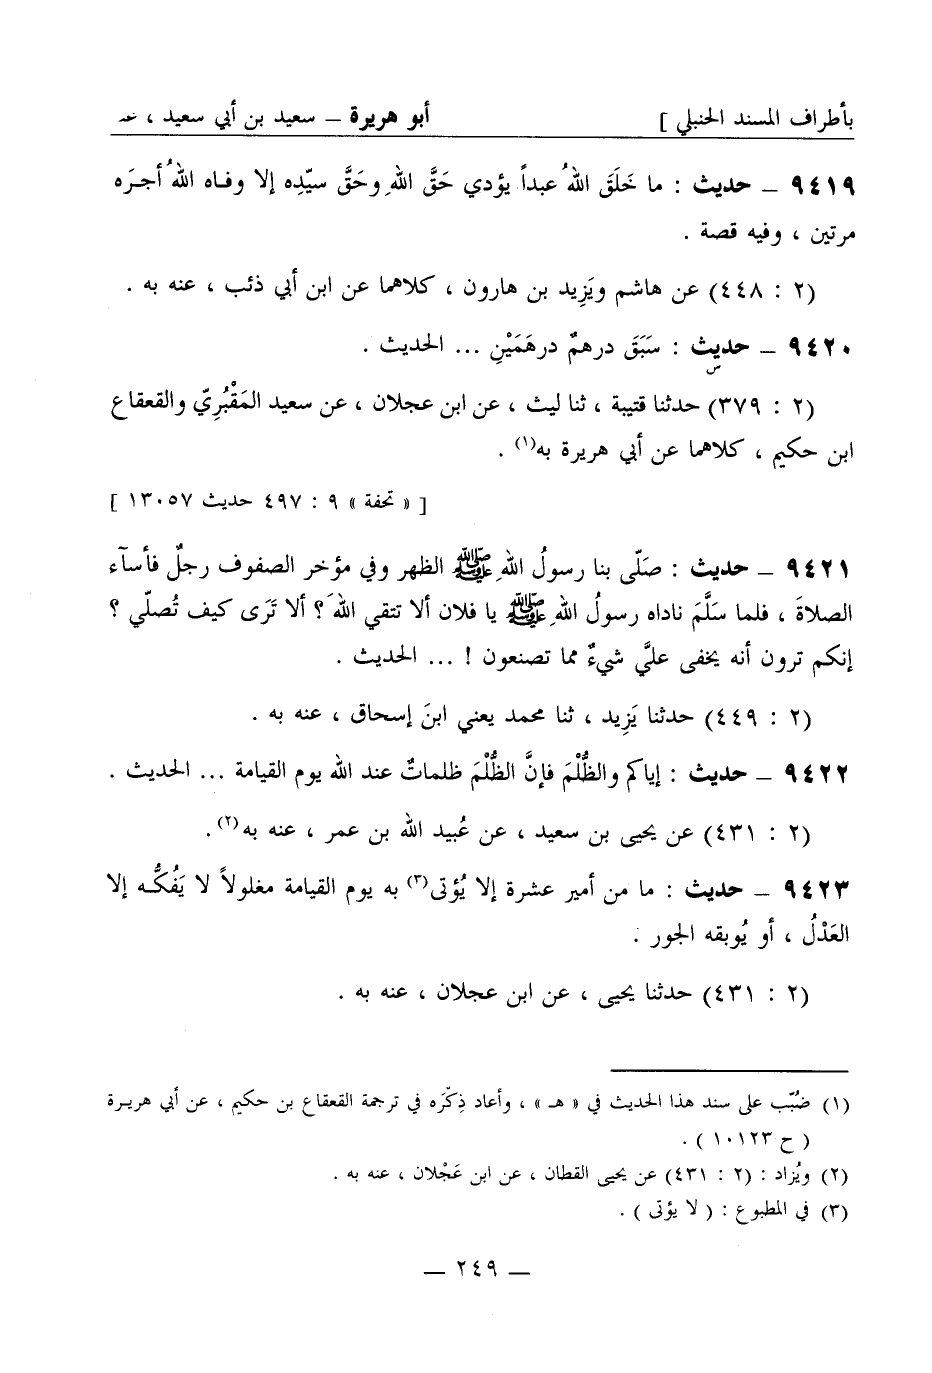 بأطراف المسند الحنبلي ] أبو هريرة – سعيد بن أبي سعيد ، عنه
٩٤١٩ – حديث : ما خَلَقَ اللهُ عبداً يؤدي حَقَّ اللهِ وحَقَّ سيّدِه إلا وفاه اللهُ أجرَه
مرتين ، وفيه قصة .
(٢ : ٤٤٨) عن هاشم ويَزِيد بن هارون ، كلاهما عن ابن أبي ذئب ، عنه به .
٩٤٢٠ – حديث : سَبَقَ درهمٌ درهَمَيْنِ ... الحديث .
س
(٢ : ٣٧٩) حدثنا قتيبة ، ثنا ليث ، عن ابن عجلان ، عن سعيد المَقْبُرِيّ والقعقاع
ابن حكيم ، كلاهما عن أبي هريرة به(١) .
[ « تحفة » ٩ : ٤٩٧ حديث ١٣٠٥٧ ]
٩٤٢١ – حديث : صَلّى بنا رسولُ اللهِ ﷺ الظهر وفي مؤخر الصفوف رجلٌ فأسآء
الصلاةَ ، فلما سَلَّمَ ناداه رسولُ اللهِ ﷺ يا فلان ألا تتقي اللهَ ؟ ألا تَرَى كيف تُصلّي ؟
إنكم ترون أنه يخفى عليَّ شيءٌ مما تصنعون ! ... الحديث .
(٢ : ٤٤٩) حدثنا يَزِيد ، ثنا محمد يعني ابنَ إسحاق ، عنه به .
٩٤٢٢ – حديث : إياكم والظُّلْمَ فإنَّ الظُّلْمَ ظلماتٌ عند الله يوم القيامة ... الحديث .
(٢ : ٤٣١) عن يحيى بن سعيد ، عن عُبيد الله بن عمر ، عنه به(٢) .
٩٤٢٣ – حديث : ما من أمير عشرة إلا يُؤتى(٣) به يوم القيامة مغلولاً لا يَفُكُّه إلا
العَدْلُ ، أو يُوبقه الجور .
(٢ : ٤٣١) حدثنا يحيى ، عن ابن عجلان ، عنه به .
(١) ضُبّب على سند هذا الحديث في « هـ » ، وأعاد ذِكرَه في ترجمة القعقاع بن حكيم ، عن أبي هريرة
( ح ١٠١٢٣ ) .
(٢) ويُزاد : (٢ : ٤٣١) عن يحيى القطان ، عن ابن عَجْلان ، عنه به .
(٣) في المطبوع : ( لا يؤتى ) .
– ٢٤٩ –